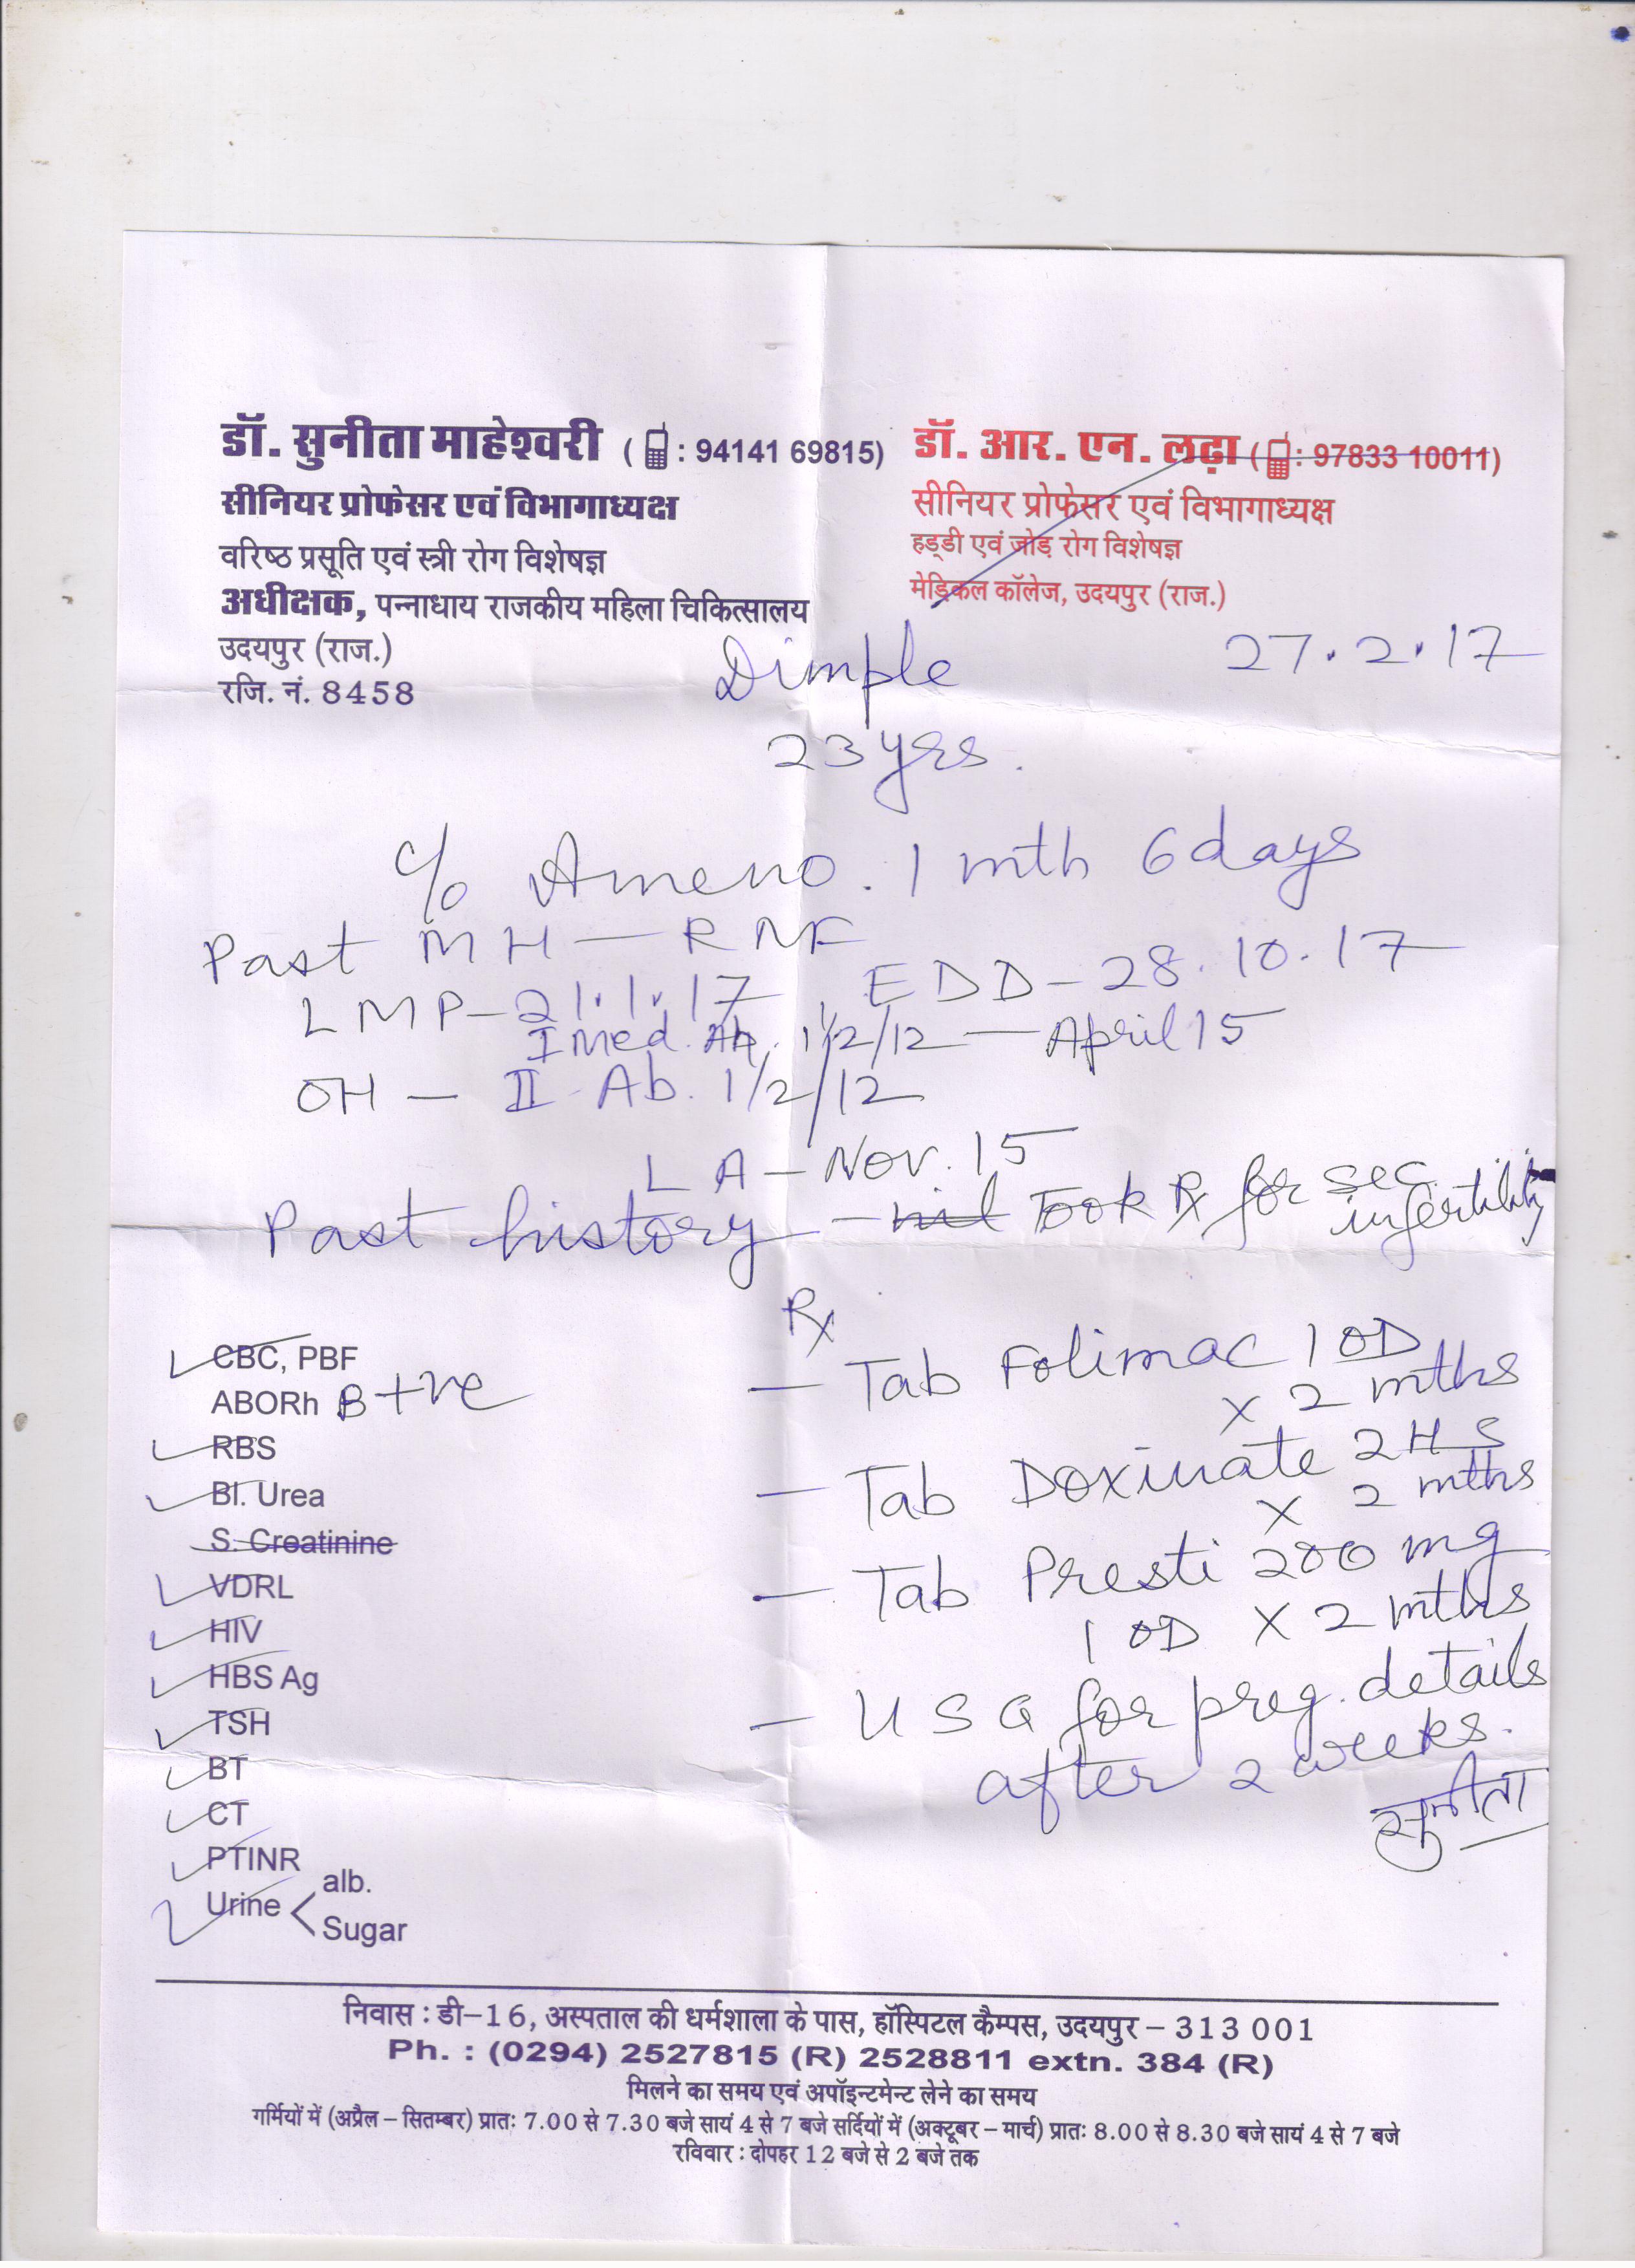 डॉ. सुनीता माहेश्वरी ( : 94141 69815)
सीनियर प्रोफेसर एवं विभागाध्यक्ष
वरिष्ठ प्रसूति एवं स्त्री रोग विशेषज्ञ
अधीक्षक, पन्नाधाय राजकीय महिला चिकित्सालय
उदयपुर (राज.)
रजि. नं. 8458
डॉ. आर. एन. लढ़ा ( : 97833 10011)
सीनियर प्रोफेसर एवं विभागाध्यक्ष
हड्डी एवं जोड़ रोग विशेषज्ञ
मेडिकल कॉलेज, उदयपुर (राज.)
27.2.17
Dimple
23 yrs.
c/o Ameno. 1 mth 6 days
Past MH - RNF
LMP - 21.1.17 EDD - 28.10.17
I Med. Ab. 1½/12 - April 15
OH - II - Ab. 1½/12
LA - Nov. 15
Past history - nil Took Rx for sec. infertility
CBC, PBF
ABORh B +ve
RBS
Bl. Urea
S. Creatinine
VDRL
HIV
HBS Ag
TSH
BT
CT
PTINR
Urine < alb.
Sugar
Rx
- Tab Folimac 1 OD
x 2 mths
- Tab Doxinate 2 HS
x 2 mths
- Tab Presti 200 mg
1 OD x 2 mths
- USG for preg. details
after 2 weeks.
सुनीता
निवास : डी-16, अस्पताल की धर्मशाला के पास, हॉस्पिटल कैम्पस, उदयपुर - 313 001
Ph. : (0294) 2527815 (R) 2528811 extn. 384 (R)
मिलने का समय एवं अपॉइन्टमेन्ट लेने का समय
गर्मियों में (अप्रैल - सितम्बर) प्रातः 7.00 से 7.30 बजे सायं 4 से 7 बजे सर्दियों में (अक्टूबर - मार्च) प्रातः 8.00 से 8.30 बजे सायं 4 से 7 बजे
रविवार : दोपहर 12 बजे से 2 बजे तक